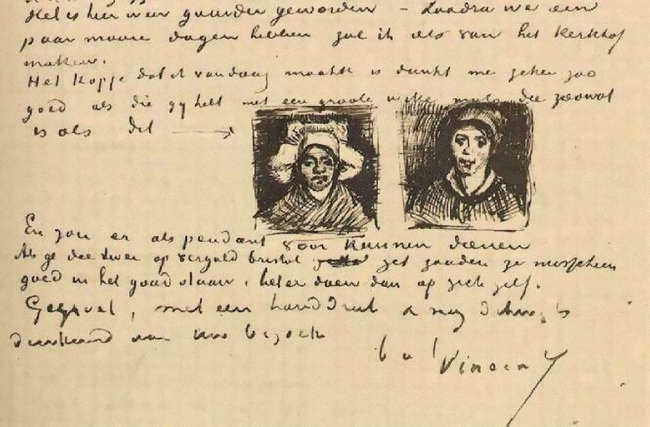 Het is hier weer guurder geworden – Zoodra we een
paar mooie dagen hebben zal ik iets van het kerkhof
maken.
Het kopje dat ik vandaag maakte is dunkt me geheel zoo
goed als die gy hebt met een groote witte muts die zoowat
is als dit
En zou er als pendant voor kunnen dienen
Als ge die twee op verguld bristol zet zouden ze misschien
goed in het goud staan, beter doen dan op zich zelf.
Gegroet, met een handdruk
van uw bezoek
Vincent